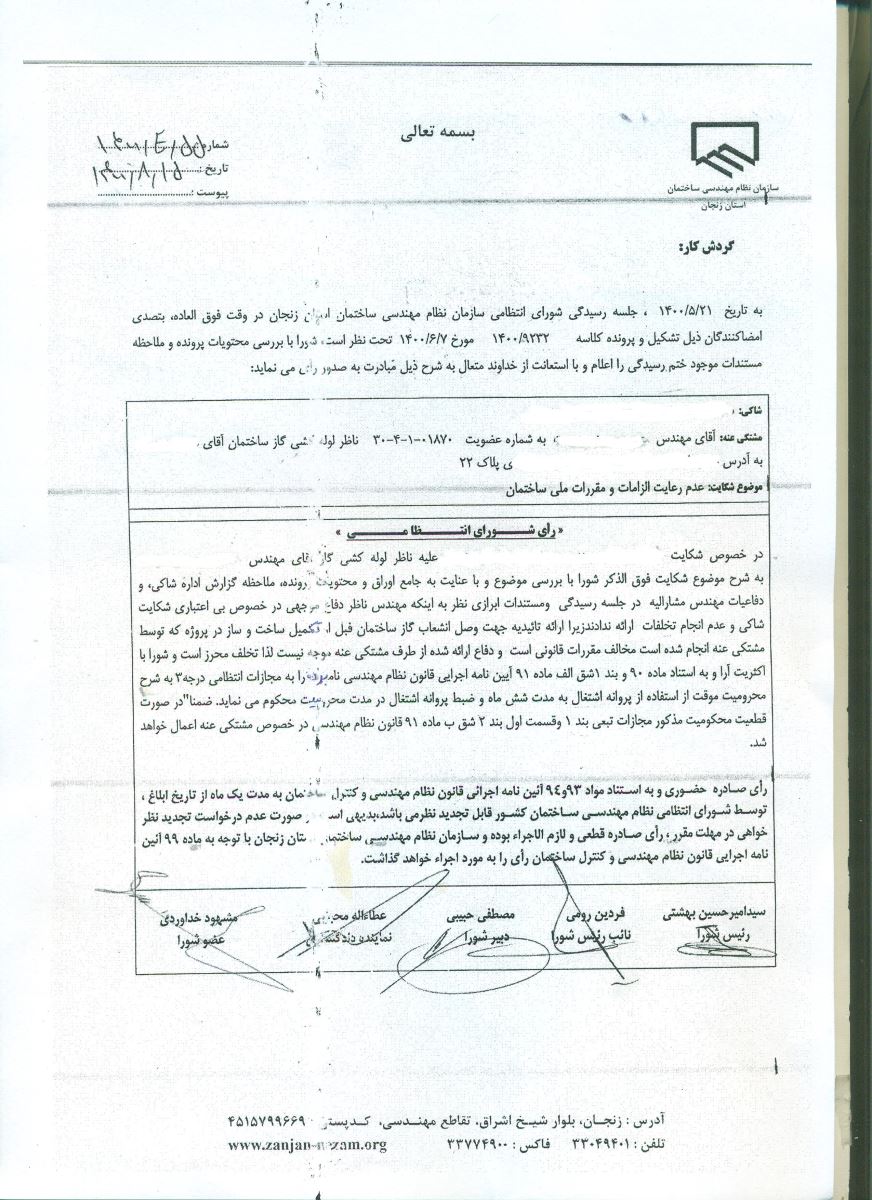 بسمه تعالی
شماره:
تاریخ: ۱۴۰۰/۸/۱۵
پیوست:
سازمان نظام مهندسی ساختمان
استان زنجان
گردش کار:
به تاریخ ۱۴۰۰/۵/۲۱ ، جلسه رسیدگی شورای انتظامی سازمان نظام مهندسی ساختمان استان زنجان در وقت فوق العاده، بتصدی
امضاکنندگان ذیل تشکیل و پرونده کلاسه ۱۴۰۰/۹۲۳۲ مورخ ۱۴۰۰/۶/۷ تحت نظر است، شورا با بررسی محتویات پرونده و ملاحظه
مستندات موجود ختم رسیدگی را اعلام و با استعانت از خداوند متعال به شرح ذیل مبادرت به صدور رأی می نماید:
شاکی:
مشتکی عنه: آقای مهندس به شماره عضویت ۰۱۸۷۰-۱-۴-۳۰ ناظر لوله کشی گاز ساختمان آقای
به آدرس ی پلاک ۲۲
موضوع شکایت: عدم رعایت الزامات و مقررات ملی ساختمان
« رأی شورای انتظامی »
در خصوص شکایت علیه ناظر لوله کشی گاز آقای مهندس
به شرح موضوع شکایت فوق الذکر شورا با بررسی موضوع و با عنایت به جامع اوراق و محتویات پرونده، ملاحظه گزارش اداره شاکی، و
دفاعیات مهندس مشارالیه در جلسه رسیدگی ومستندات ابرازی نظر به اینکه مهندس ناظر دفاع موجهی در خصوص بی اعتباری شکایت
شاکی و عدم انجام تخلفات ارائه ندادندزیرا ارائه تائیدیه جهت وصل انشعاب گاز ساختمان قبل از تکمیل ساخت و ساز در پروژه که توسط
مشتکی عنه انجام شده است مخالف مقررات قانونی است و دفاع ارائه شده از طرف مشتکی عنه موجه نیست لذا تخلف محرز است و شورا با
اکثریت آرا و به استناد ماده ۹۰ و بند ۱شق الف ماده ۹۱ آیین نامه اجرایی قانون نظام مهندسی نامبرده را به مجازات انتظامی درجه۳ به شرح
محرومیت موقت از استفاده از پروانه اشتغال به مدت شش ماه و ضبط پروانه اشتغال در مدت محرومیت محکوم می نماید. ضمنا"در صورت
قطعیت محکومیت مذکور مجازات تبعی بند ۱ وقسمت اول بند ۲ شق ب ماده ۹۱ قانون نظام مهندسی در خصوص مشتکی عنه اعمال خواهد
شد.
رأی صادره حضوری و به استناد مواد ۹۳و۹۴ آئین نامه اجرائی قانون نظام مهندسی و کنترل ساختمان به مدت یک ماه از تاریخ ابلاغ ،
توسط شورای انتظامی نظام مهندسی ساختمان کشور قابل تجدید نظرمی باشد،بدیهی است در صورت عدم درخواست تجدید نظر
خواهی در مهلت مقرر ، رأی صادره قطعی و لازم الاجراء بوده و سازمان نظام مهندسی ساختمان استان زنجان با توجه به ماده ۹۹ آئین
نامه اجرایی قانون نظام مهندسی و کنترل ساختمان رأی را به مورد اجراء خواهد گذاشت.
سیدامیرحسین بهشتی فردین رومی مصطفی حبیبی عطاءاله مشهود خداوردی
رئیس شورا نائب رئیس شورا دبیر شورا نماینده دادگستری عضو شورا
آدرس : زنجان، بلوار شیخ اشراق، تقاطع مهندسی، کدپستی ۴۵۱۵۷۹۹۶۶۹
تلفن : ۳۳۰۴۹۴۰۱ فاکس : ۳۳۷۷۴۹۰۰ www.zanjan-nezam.org